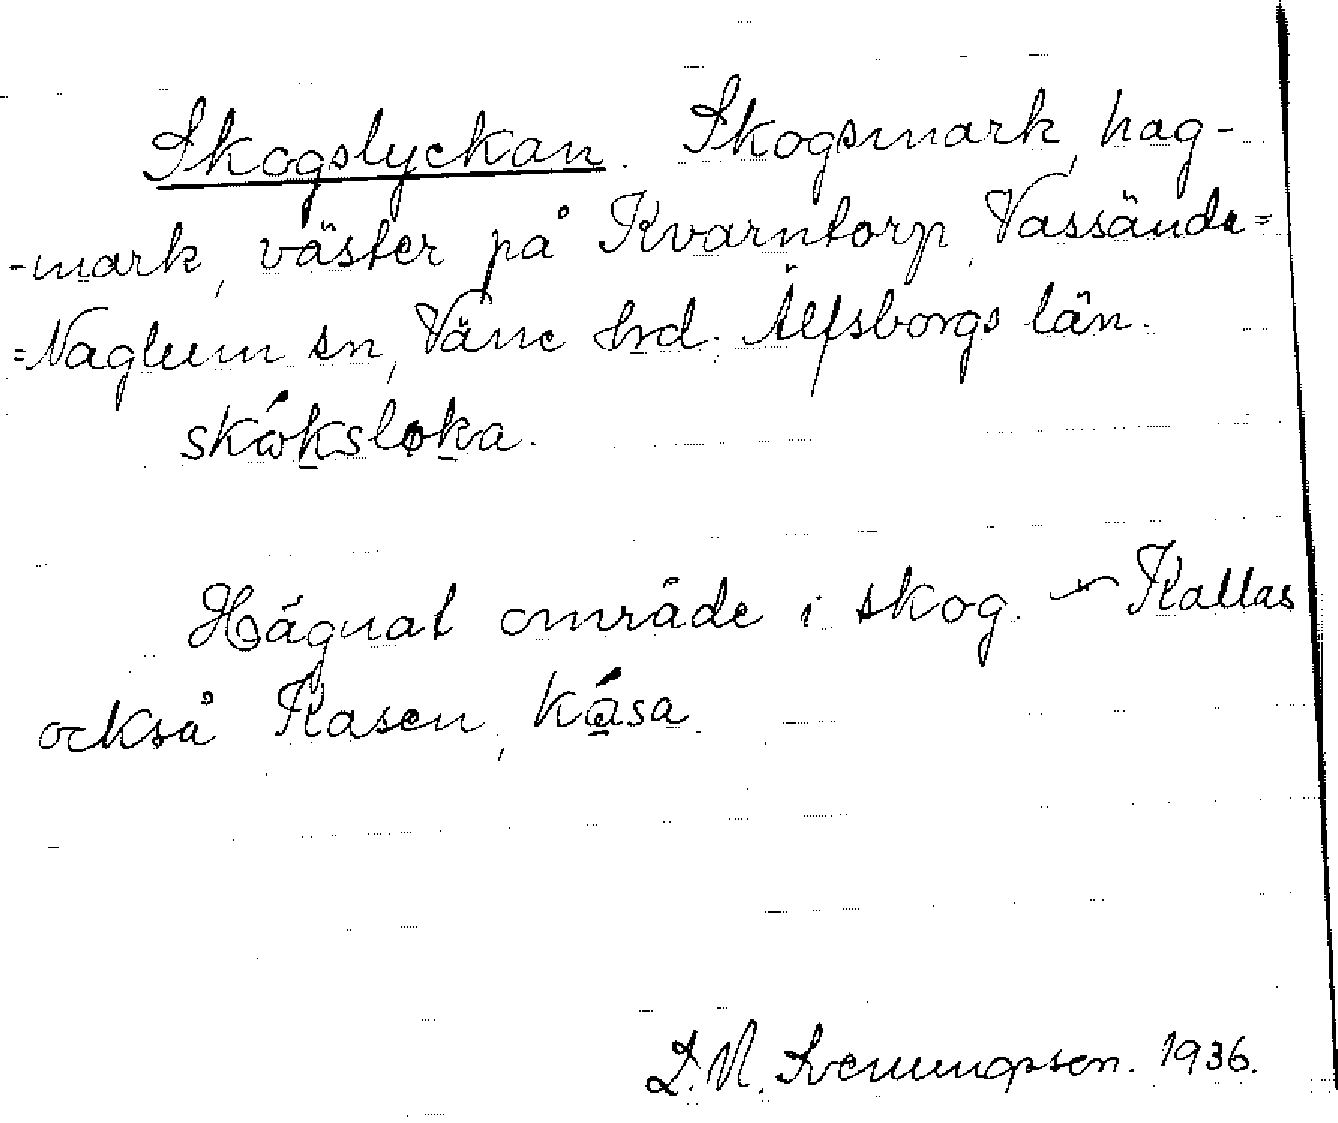 Skogslyckan. Skogsmark, hag-
-mark, väster på Kvarntorp, Vassända=
=Naglum sn, Väne hrd. Älfsborgs län.
skóksloka.
Hägnat område i skog. — Kallas
också Kasen, kása.
D. N. Svenungsson. 1936.